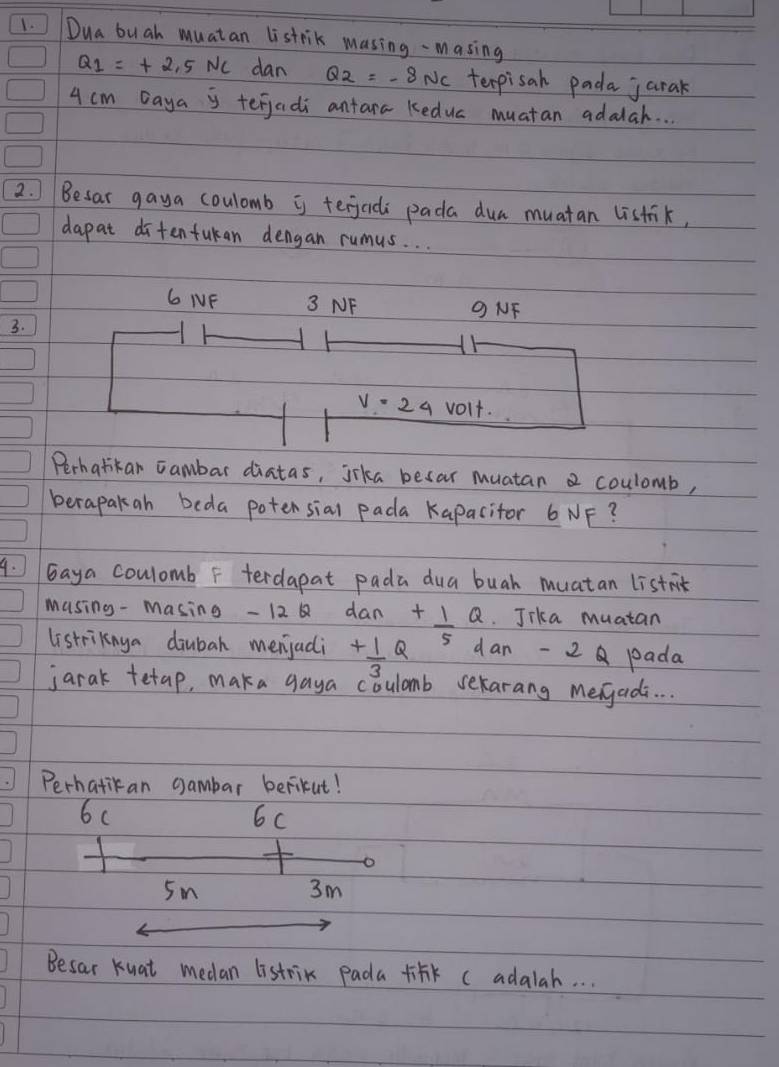 1. Dua buah muatan listrik masing-masing
Q1 = + 2,5 Nc dan Q2 = - 8 Nc terpisah pada jarak
4 cm Gaya yg terjadi antara kedua muatan adalah...
2. Besar gaya coulomb yg terjadi pada dua muatan listrik,
dapat ditentukan dengan rumus...
6 NF 3 NF 9 NF
3.
V = 24 volt.
Perhatikan Gambar diatas, jika besar muatan 2 coulomb,
berapakah beda potensial pada kapacitor 6 NF?
4. Gaya coulomb F terdapat pada dua buah muatan listrik
masing-masing - 12 Q dan + 1/5 Q. Jika muatan
listriknya diubah menjadi + 1/3 Q dan - 2 Q pada
jarak tetap, maka gaya coulomb sekarang menjadi...
Perhatikan gambar berikut!
6 C 6 C
5m 3m
Besar kuat medan listrik pada titik C adalah...